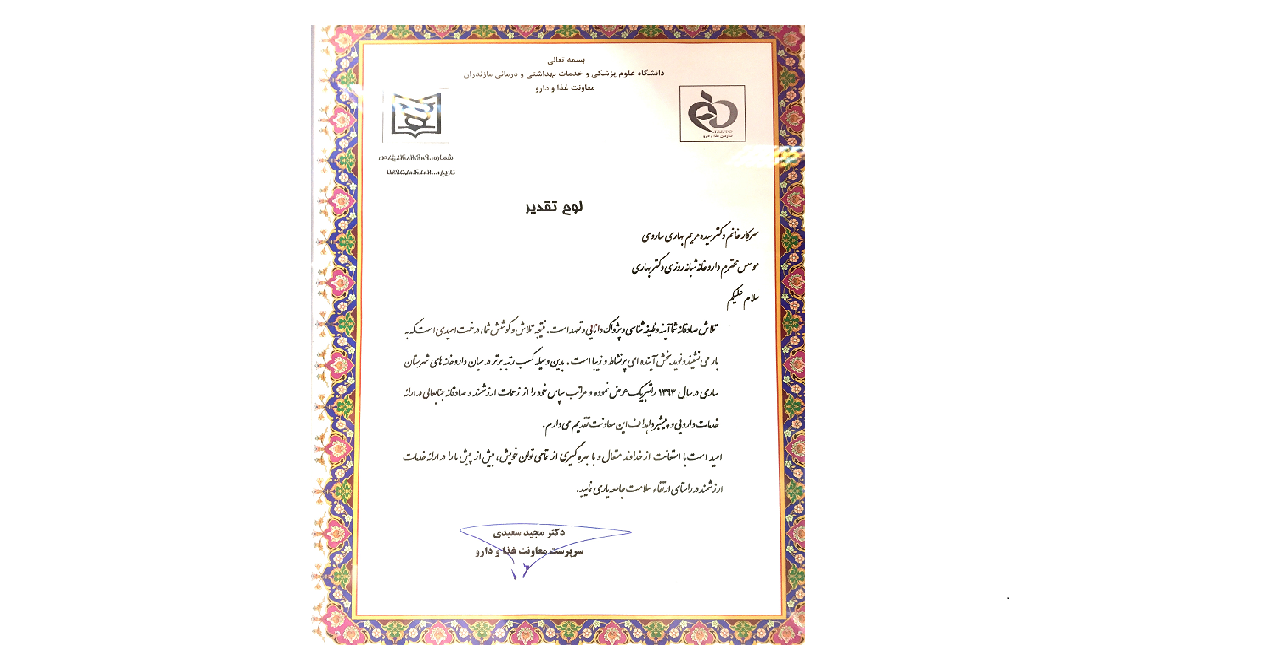 بسمه تعالی
دانشگاه علوم پزشکی و خدمات بهداشتی و درمانی مازندران
معاونت غذا و دارو
معاونت غذا و دارو
شماره
تاریخ
لوح تقدیر
سرکار خانم دکتر سیده مریم بهاری ساروی
موسس محترم داروخانه شبانه روزی دکتر بهاری
سلام علیکم
تلاش صادقانه شما آینه وظیفه شناسی و پژواک دانایی و تعهد است. نتیجه تلاش و کوشش شما، درخت امیدی است که به
بار می نشیند و نوید بخش آینده ای پرنشاط و زیبا است. بدین وسیله کسب رتبه برتر در میان داروخانه های شهرستان
ساری در سال ۱۳۹۳ را تبریک عرض نموده و مراتب سپاس خود را از زحمات ارزشمند و صادقانه جنابعالی در ارائه
خدمات دارویی و پیشبرد اهداف این معاونت تقدیم می دارم.
امید است با استعانت از خداوند متعال و با بهره گیری از تمامی توان خویش، بیش از پیش ما را در ارائه خدمات
ارزشمند در راستای ارتقاء سلامت جامعه یاری نمایید.
دکتر مجید سعیدی
سرپرست معاونت غذا و دارو